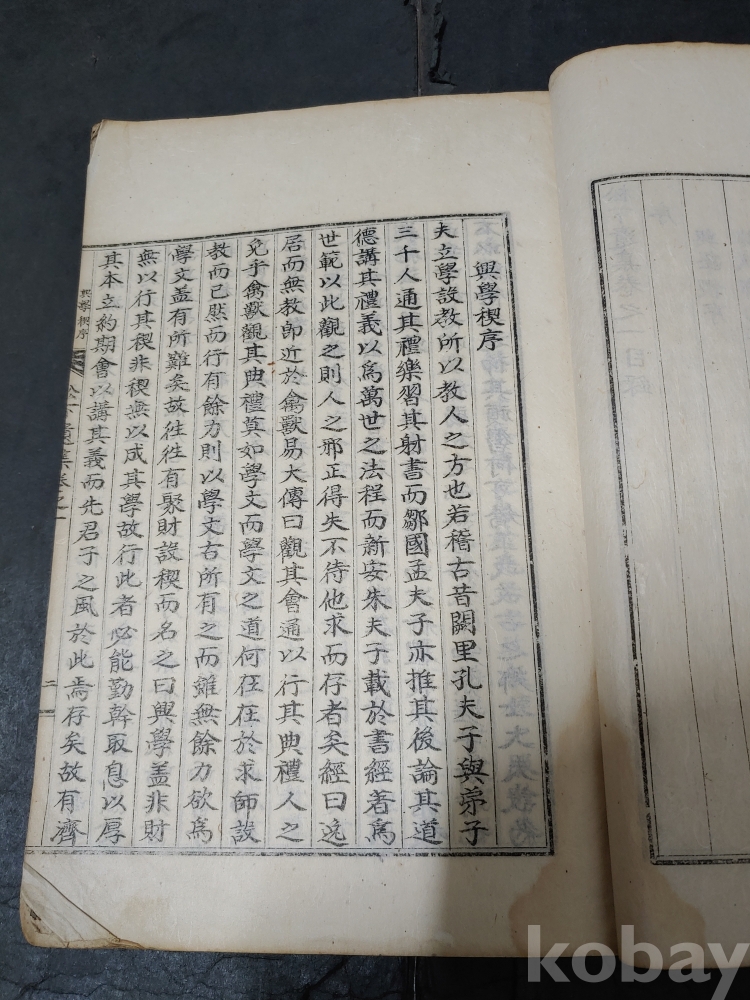 興學稧序
夫立學設教所以教人之方也若稽古昔闕里孔夫子與弟子
三千人通其禮樂習其射書而鄒國孟夫子亦推其後論其道
德講其禮義以爲萬世之法程而新安朱夫子載於書經著爲
世範以此觀之則人之邪正得失不待他求而存者矣經曰逸
居而無教即近於禽獸易大傳曰觀其會通以行其典禮人之
免乎禽獸觀其典禮莫如學文而學文之道何在在於求師設
教而已然而行有餘力則以學文古所有之而雖無餘力欲爲
學文盖有所難矣故徃徃有聚財設稧而名之曰興學盖非財
無以行其稧非稧無以成其學故行此者必能勤幹取息以厚
其本立約期會以講其義而先君子之風於此焉存矣故有濟
興學稧序
遺集卷之一
二
卷之一目
序
kobay